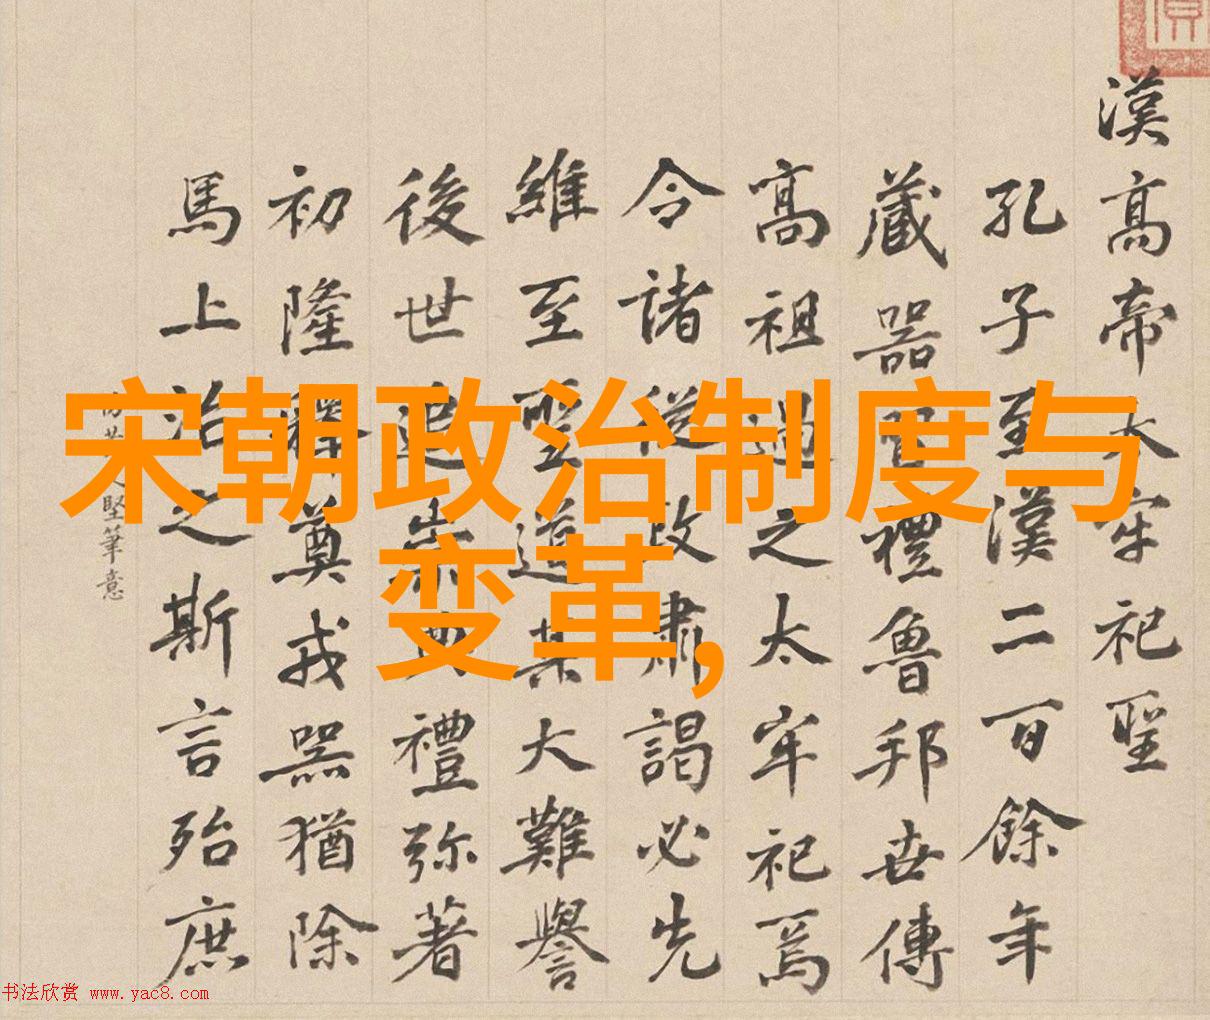 宋朝政治制度与
变革,
漢高帝太牢祀聖
孔子至漢二百餘年
藏器禮魯邦世傳
高祖過之太牢祀焉
令諸從政肅謁必先
維至聖道其大難譽
後世追崇禮弥著
初隆釋奠戎器猶除
馬上治之斯言殆庶
堅筆意
书法欣赏 www.yac8.com